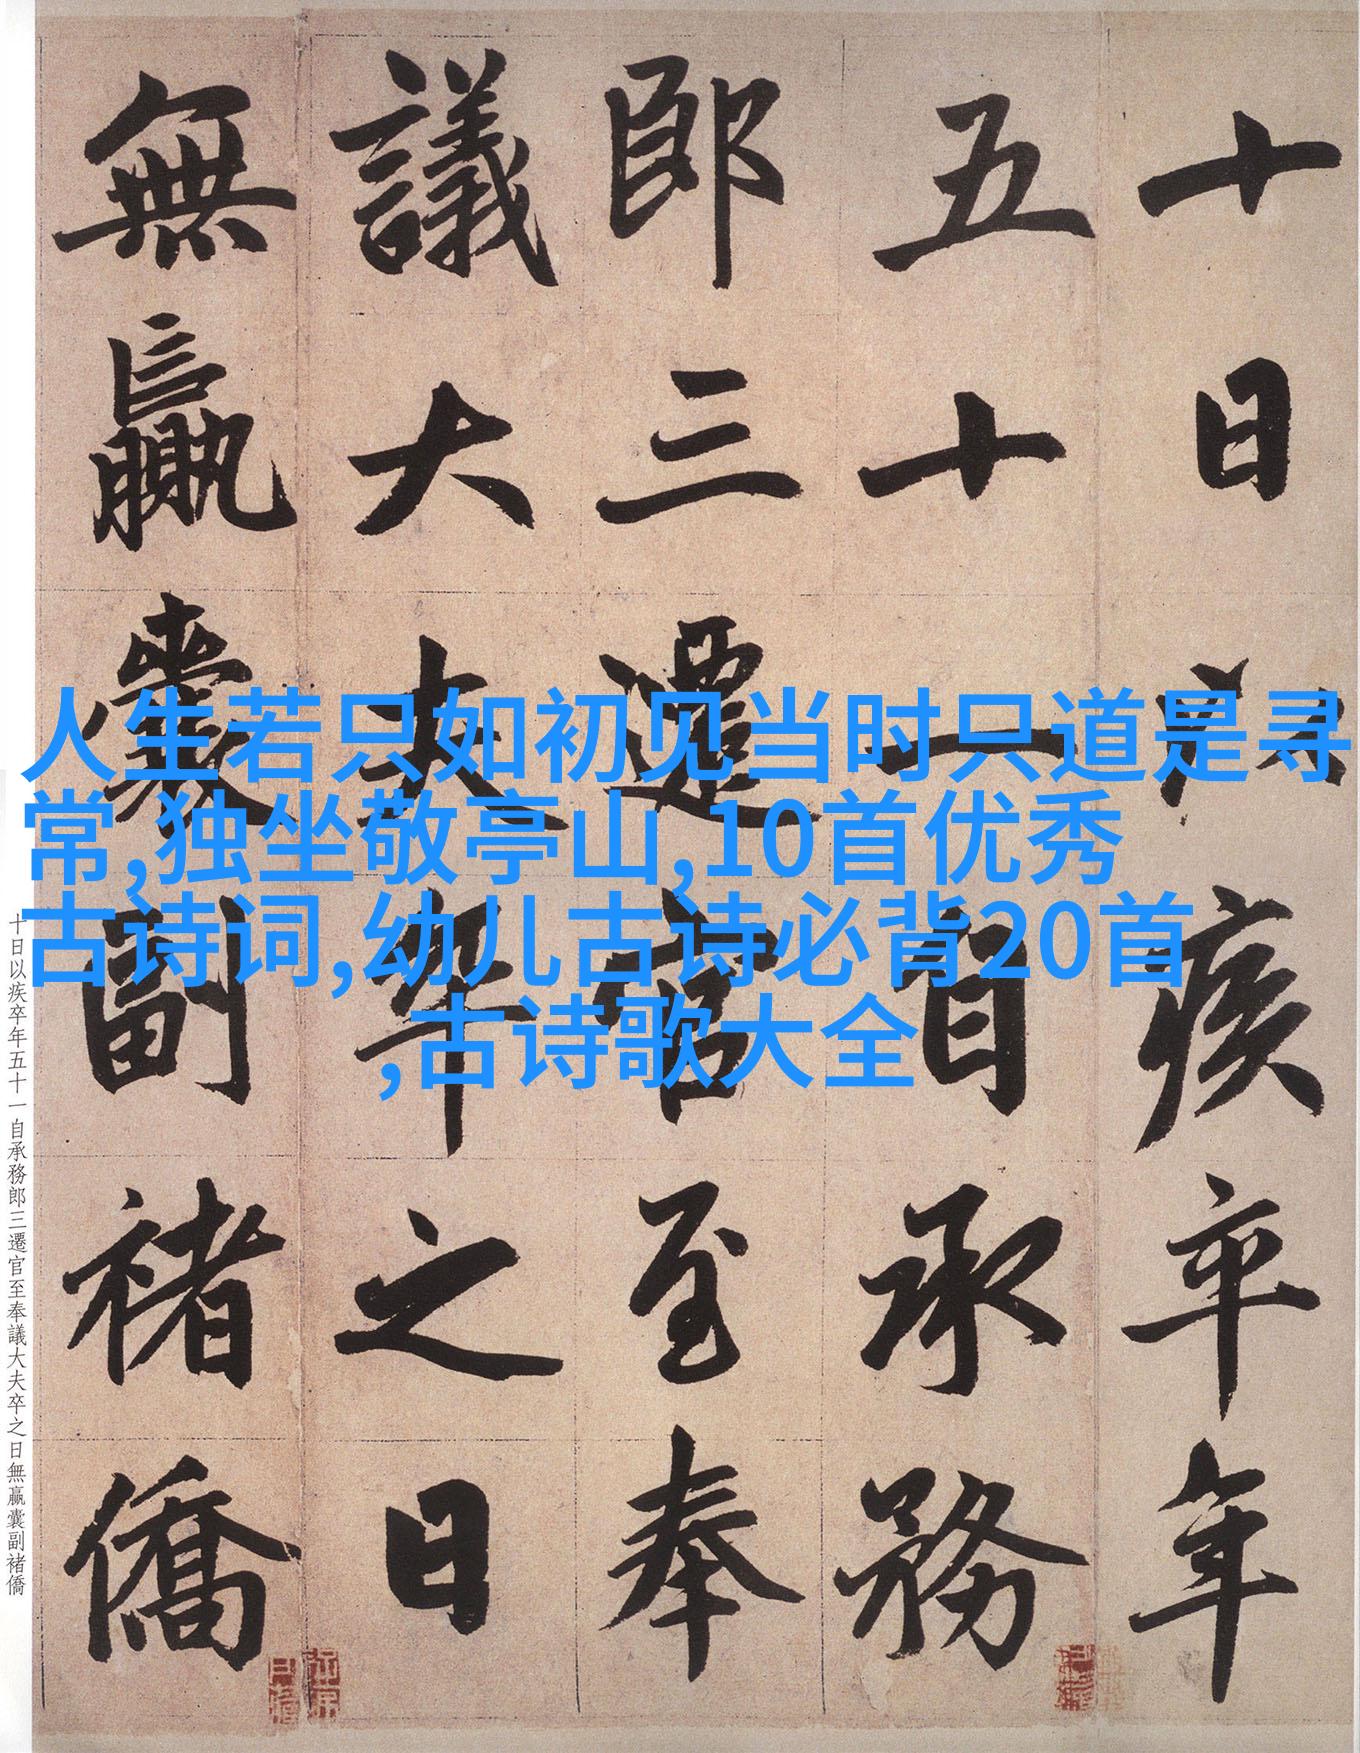 十日以疾卒年
五十一自承務
郎三遷官至奉
議大夫卒之日
無贏囊副褚僑
人生若只如初见当时只道是寻
常,独坐敬亭山,10首优秀
古诗词,幼儿古诗必背20首
,古诗歌大全
十日以疾卒年五十一自承務郎三遷官至奉議大夫卒之日無贏囊副褚僑